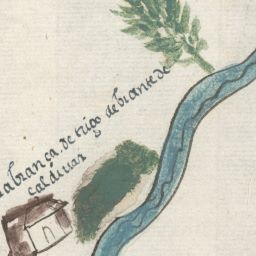 labrança de trigo de biante de
caldiuar